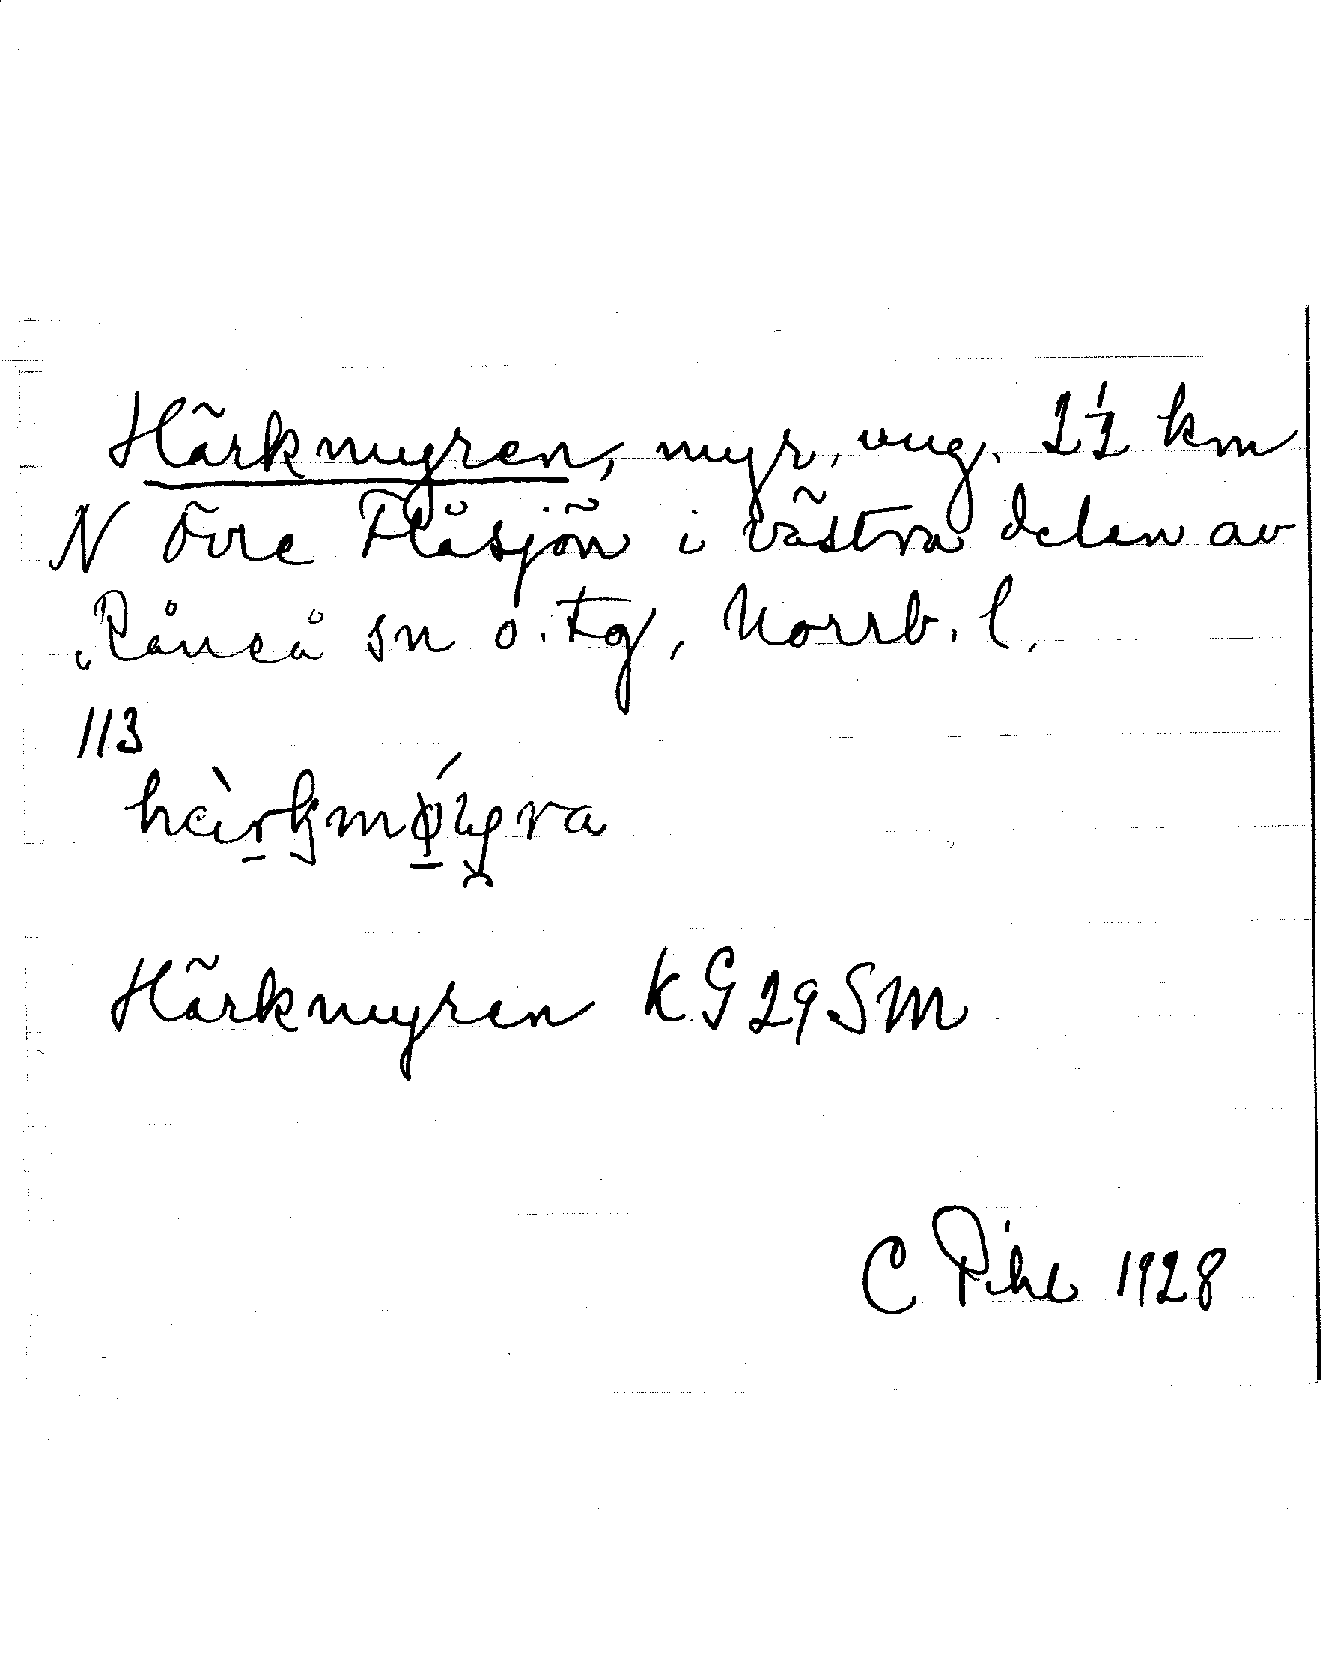 Härkmyren, myr, ung. 2½ km
N Övre Flåsjön i västra delen av
Råneå sn o. tg, Norrb. l.
113
Härkmyren KG29SM
C Pihl 1928